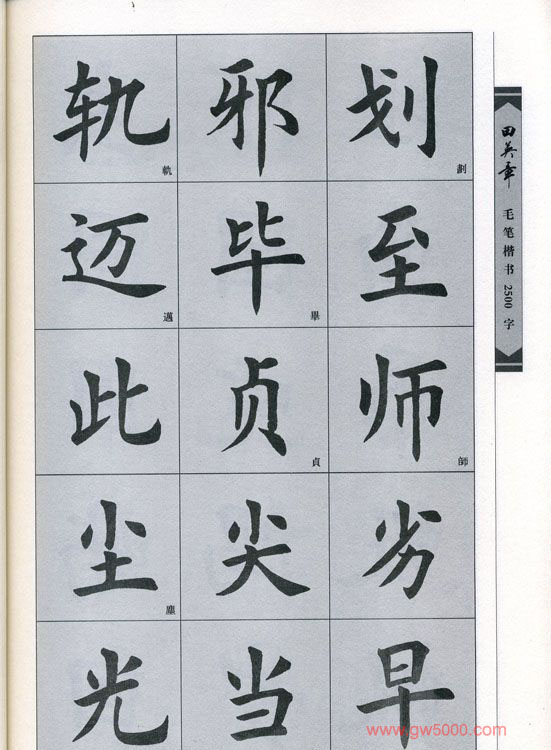 轨 軌 邪 划 劃
迈 邁 毕 畢 至
此 贞 貞 师 師
尘 塵 尖 劣
光 当 早
田英章
毛笔楷书2500字
www.gw5000.com